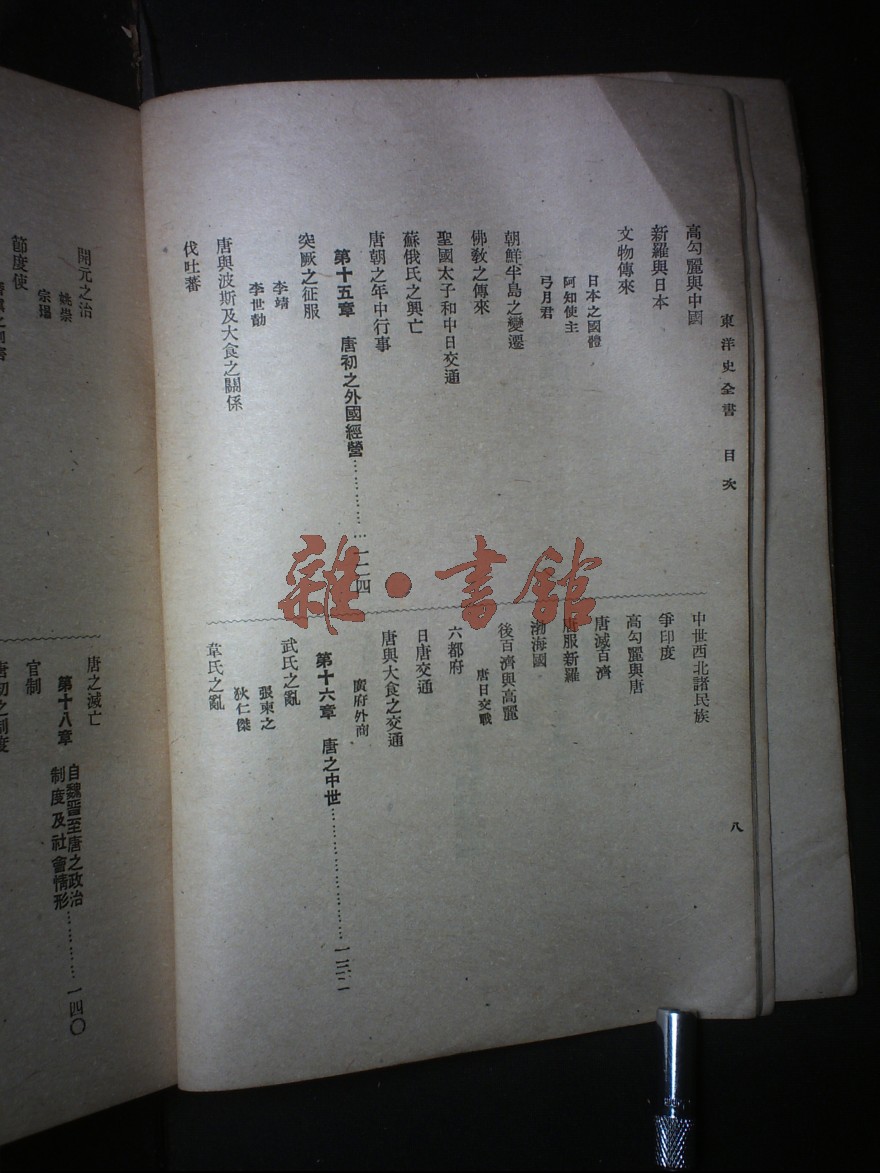 東洋史全書 目次
八
高勾麗與中國
新羅與日本
文物傳來
日本之國體
阿知使主
弓月君
朝鮮半島之變遷
佛敎之傳來
聖國太子和中日交通
蘇俄氏之興亡
唐朝之年中行事
第十五章 唐初之外國經營……………一二四
突厥之征服
李靖
李世勣
唐與波斯及大食之關係
伐吐蕃
中世西北諸民族
爭印度
高勾麗與唐
唐滅百濟
唐服新羅
渤海國
後百濟與高麗
唐日交戰
六都府
日唐交通
唐與大食之交通
廣府外商
第十六章 唐之中世……………………一三二
武氏之亂
張柬之
狄仁傑
韋氏之亂
開元之治
姚崇
宗璟
節度使
唐之滅亡
第十八章 自魏晉至唐之政治
制度及社會情形…………一四〇
官制
唐初之制度
雜·書館